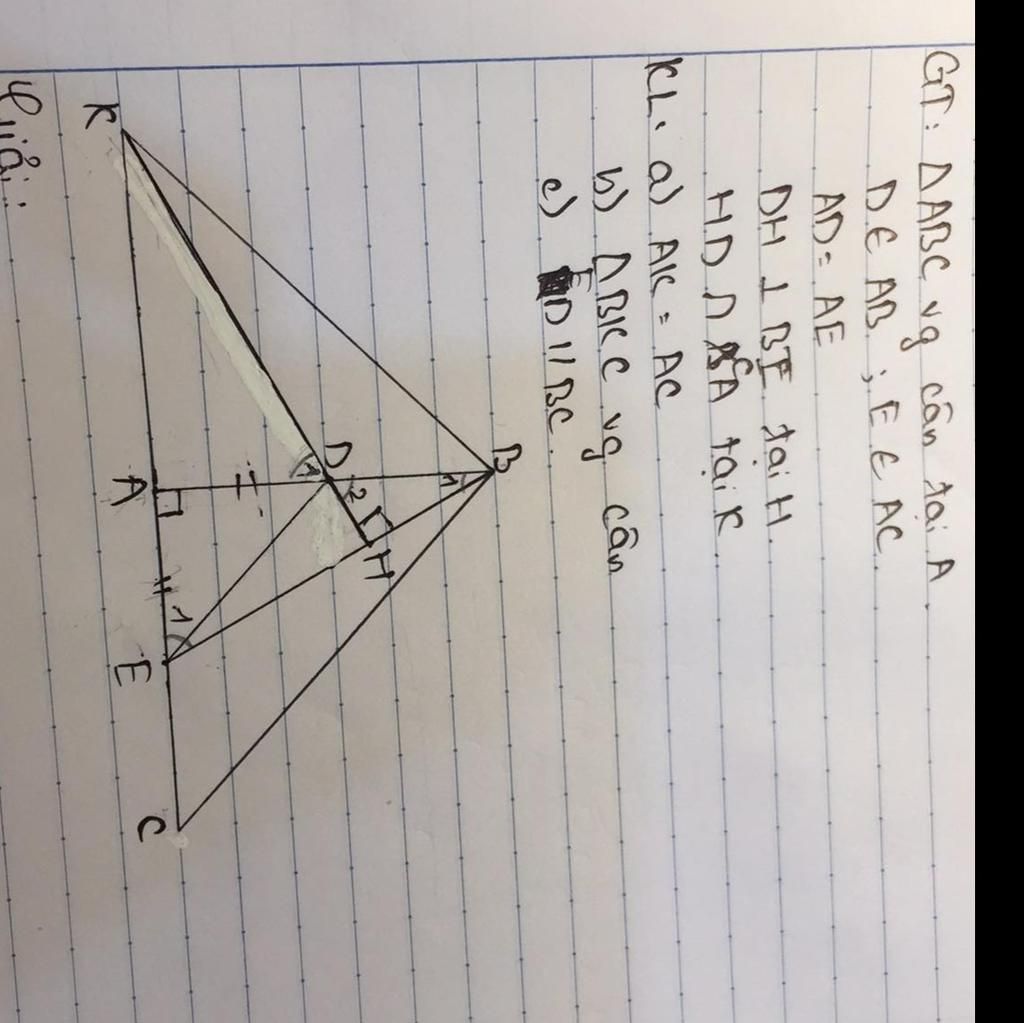 GT: ΔABC vg cân tại A.
D ∈ AB ; E ∈ AC
AD = AE
DH ⊥ BE tại H.
HD ∩ CA tại K
KL. a) AK = AC
b) ΔBKC vg cân
c) ED // BC.
B
1
D
2
H
1
K
A
1
E
C
Giải: